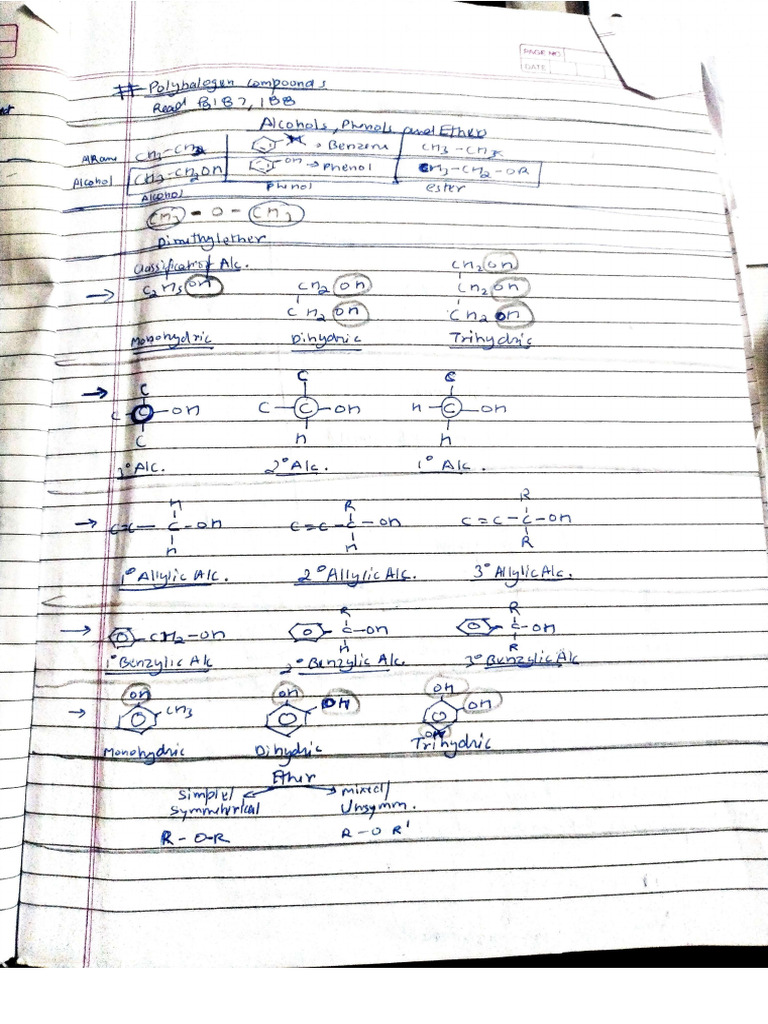 PAGE NO.
DATE
# Polyhalogen compounds
Read Pg 187, 188
Alcohols, Phenols and Ether
Alkane CH3-CH3 → Benzene CH3-CH3
Alcohol CH3-CH2OH OH → Phenol CH3-CH2-OR
Alcohol Phenol ester
CH3 - O - CH3
Dimethylether
Classification of Alc.
CH2OH
→ C2H5OH CH2OH CH2OH
CH2OH CH2OH
Monohydric Dihydric Trihydric
→ C C C
C-C-OH C-C-OH H-C-OH
C H H
3° Alc. 2° Alc. 1° Alc.
H R R
→ C=C-C-OH C=C-C-OH C=C-C-OH
H H R
1° Allylic Alc. 2° Allylic Alc. 3° Allylic Alc.
R R
→ -CH2-OH -C-OH -C-OH
H R
1° Benzylic Alc 2° Benzylic Alc. 3° Benzylic Alc
OH OH OH
→ CH3 OH OH
OH
Monohydric Dihydric Trihydric
Ether
Simple/ Mixed/
Symmetrical Unsymm.
R-O-R R-O R'